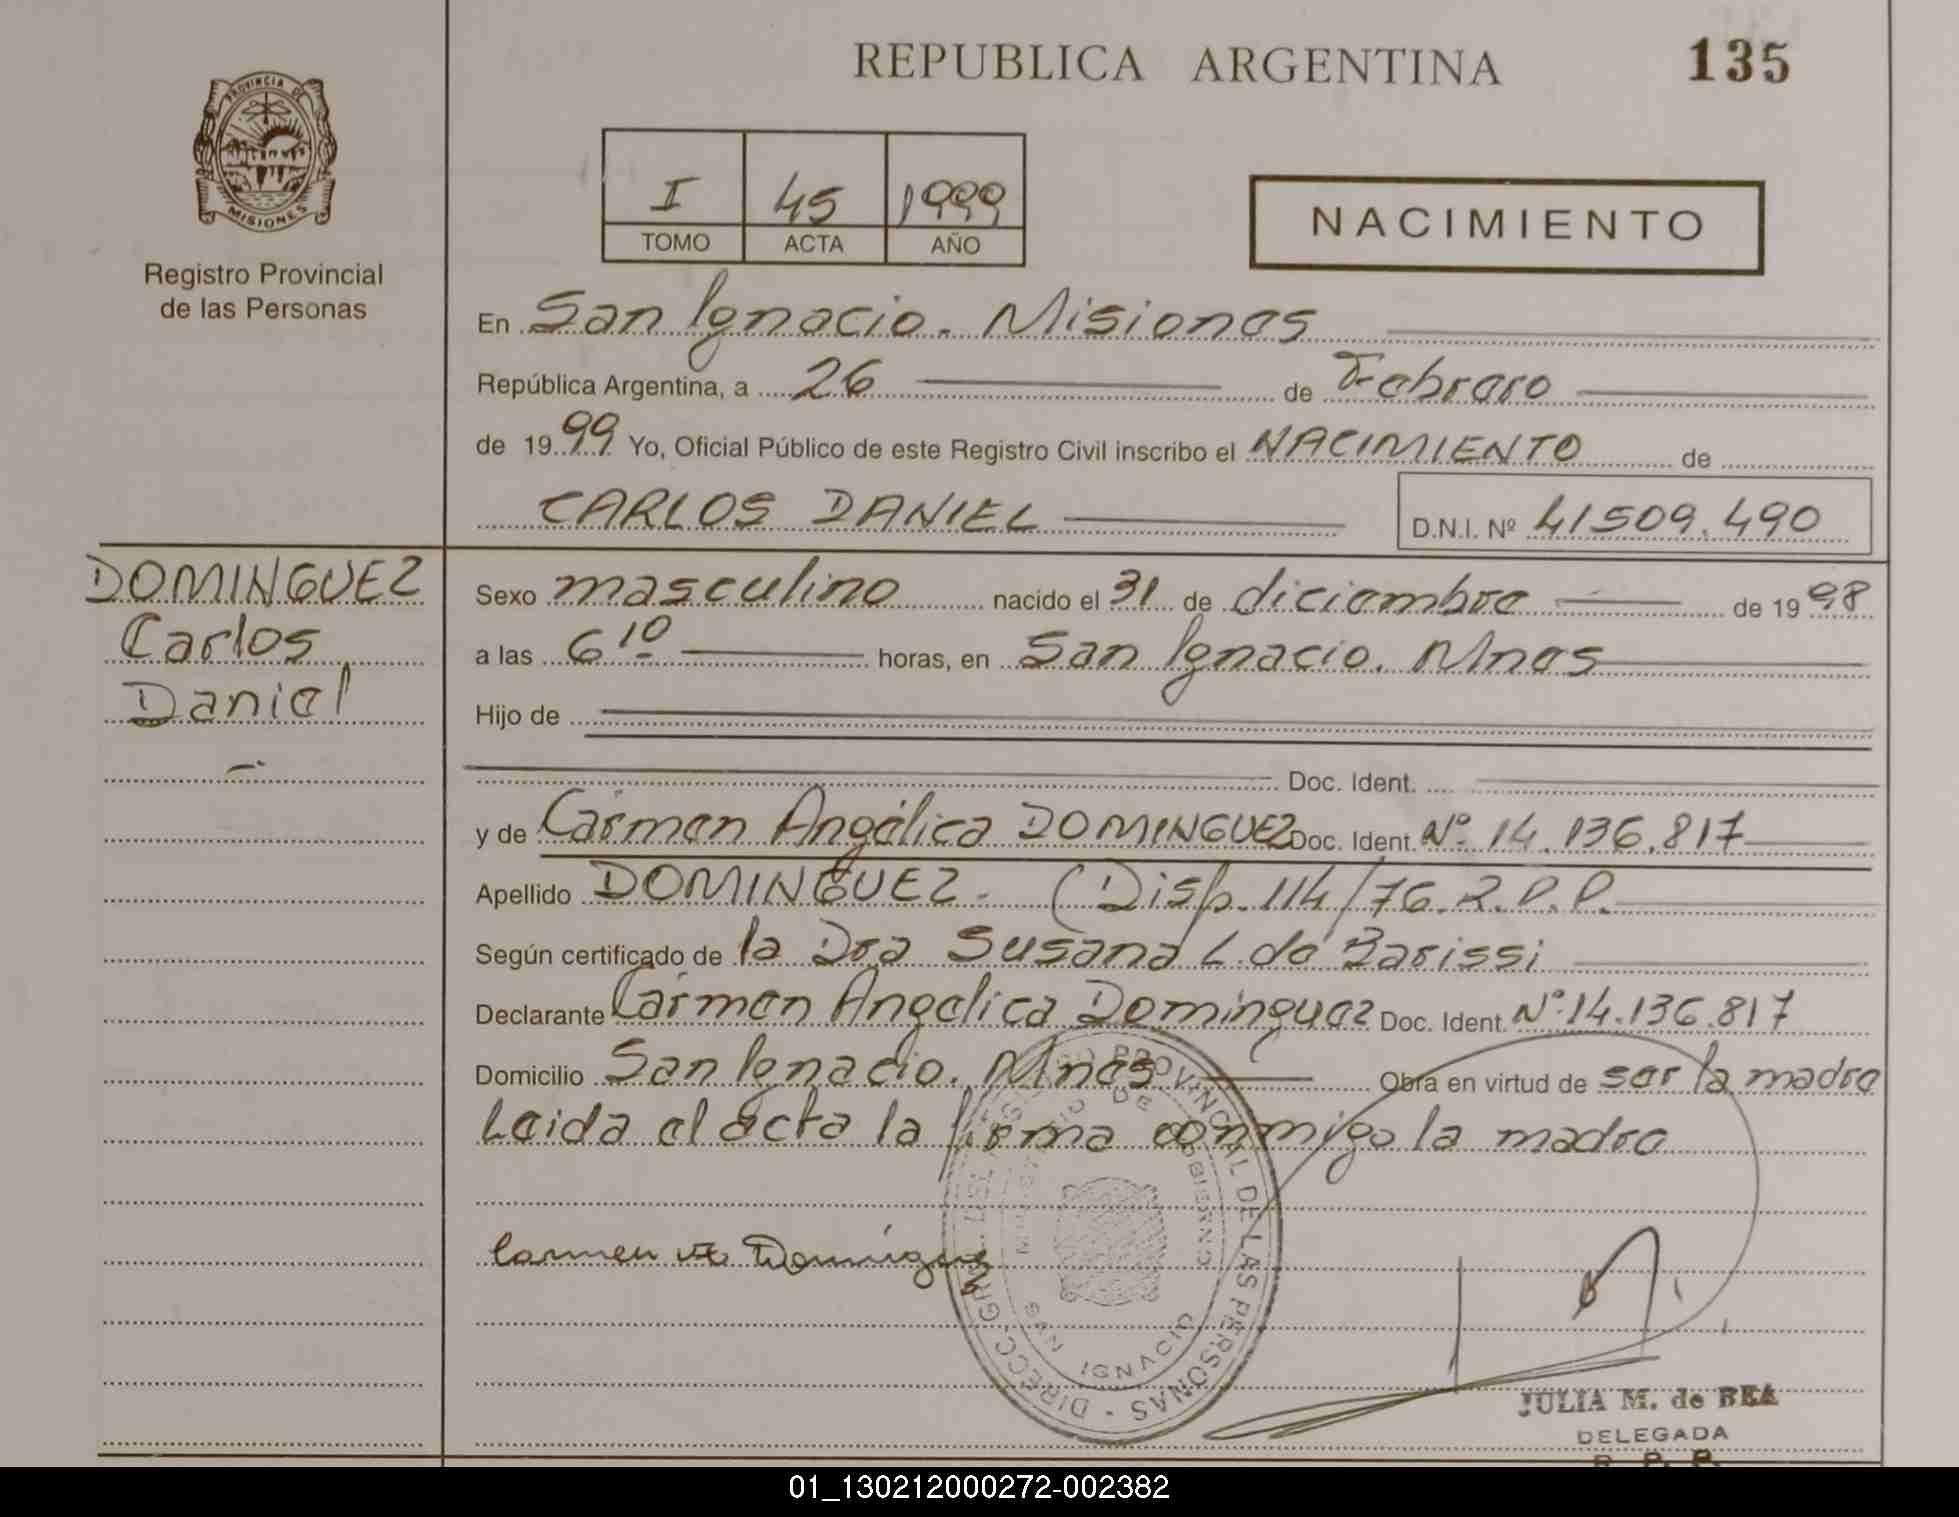 REPUBLICA ARGENTINA
135
PROVINCIA DE
MISIONES
Registro Provincial
de las Personas
I 45 1999
TOMO ACTA AÑO
NACIMIENTO
En San Ignacio. Misiones
República Argentina, a 26 de Febrero
de 1999 Yo, Oficial Público de este Registro Civil inscribo el NACIMIENTO de
CARLOS DANIEL D.N.I. Nº 41509.490
DOMINGUEZ
Carlos
Daniel
Sexo masculino nacido el 31 de diciembre de 1998
a las 6 10 horas, en San Ignacio. Mnes
Hijo de
Doc. Ident.
y de Carmen Angélica DOMINGUEZ Doc. Ident. Nº 14.136.817
Apellido DOMINGUEZ. (Disp. 114/76.R.P.P.
Según certificado de la Dra Susana L. de Barissi
Declarante Carmen Angelica Domínguez Doc. Ident. Nº 14.136.817
Domicilio San Ignacio. Mnes Obra en virtud de ser la madre
Leida el acta la firma conmigo la madre
Carmen A. Domínguez
DIRECC. GRAL. REGISTRO PROVINCIAL DE LAS PERSONAS
MINISTERIO DE GOBIERNO
SAN IGNACIO
JULIA M. de BEA
DELEGADA
R. P. P.
01_130212000272-002382